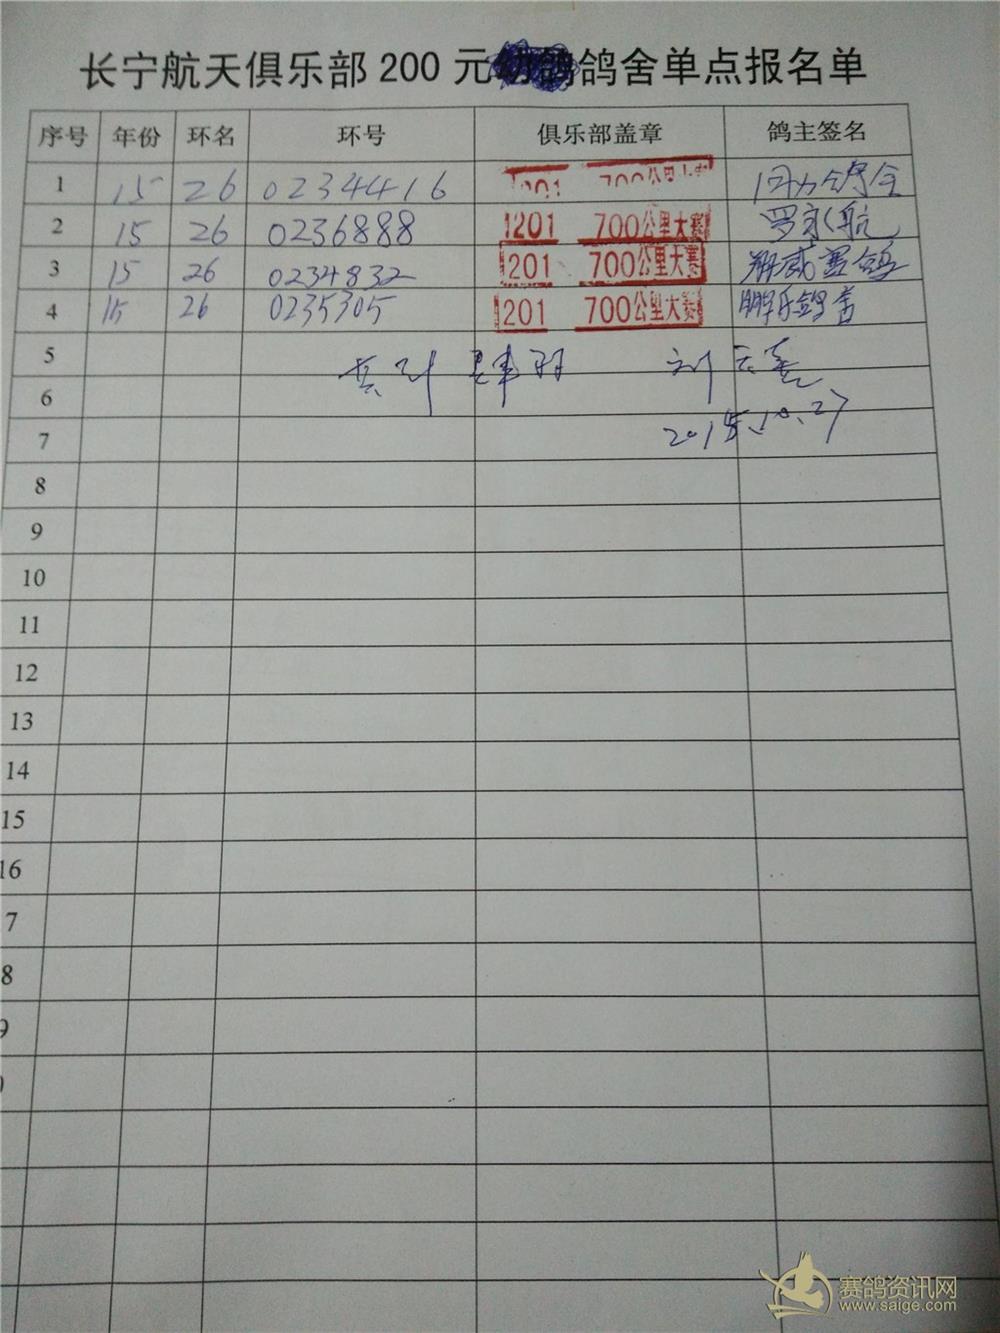 长宁航天俱乐部200元鸽舍单点报名单
序号 年份 环名 环号 俱乐部盖章 鸽主签名
1 15 26 0234416 201 700公里大赛 回力鸽舍
2 15 26 0236888 1201 700公里大赛 罗家航
3 15 26 0234832 1201 700公里大赛 翔威赛鸽
4 15 26 0235305 1201 700公里大赛 鹏乐鸽舍
5 共计肆羽
6
2015.10.27
7
8
9
10
11
12
13
14
15
16
7
8
9
赛鸽资讯网
www.saige.com